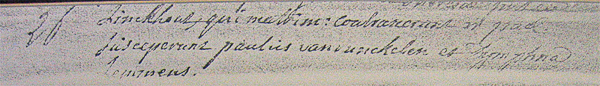 26 Linckhout, qui matrim: Contraxerunt et
susceperunt paulus vandunckelen et Dymphna
Lemmens.